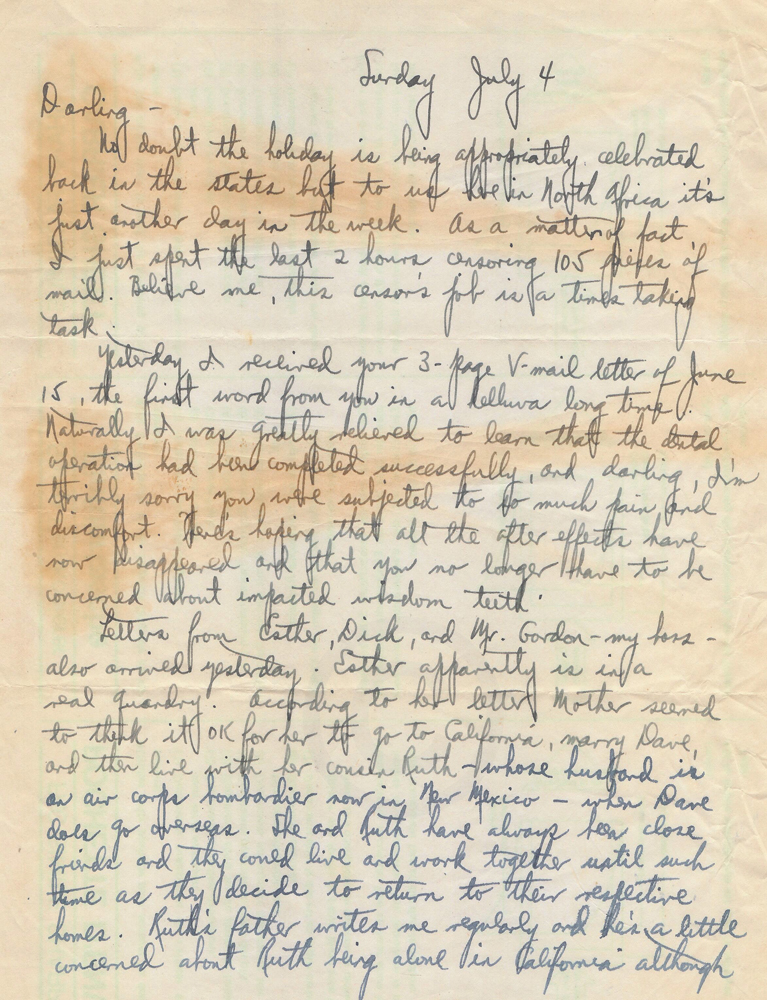 Sunday July 4
Darling -
No doubt the holiday is being appropriately celebrated
back in the states but to us here in North Africa it's
just another day in the week. As a matter of fact,
I just spent the last 2 hours censoring 105 pieces of
mail. Believe me, this censor's job is a times taking
task.
Yesterday I received your 3-page V-mail letter of June
15, the first word from you in a helluva long time.
Naturally I was greatly relieved to learn that the dental
operation had been completed successfully, and darling, I'm
terribly sorry you were subjected to so much pain and
discomfort. Here's hoping that all the after effects have
now disappeared and that you no longer have to be
concerned about impacted wisdom teeth.
Letters from Esther, Dick, and Mr. Gordon - my boss -
also arrived yesterday. Esther apparently is in a
real quandry. According to her letter Mother seemed
to think it OK for her to go to California, marry Dave,
and then live with her cousin Ruth - whose husband is
an air corps bombardier now in New Mexico - when Dave
does go overseas. She and Ruth have always been close
friends and they could live and work together until such
time as they decide to return to their respective
homes. Ruth's father writes me regularly and he's a little
concerned about Ruth being alone in California although